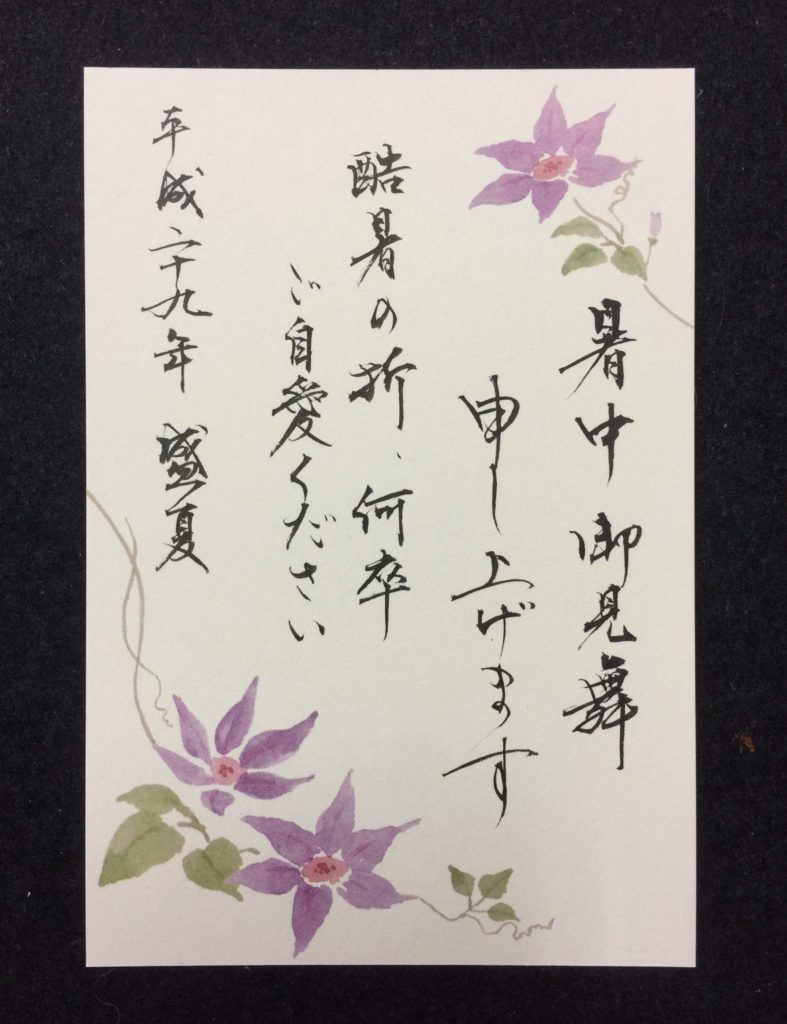 暑中御見舞
申し上げます
酷暑の折、何卒
ご自愛ください
平成二十九年 盛夏